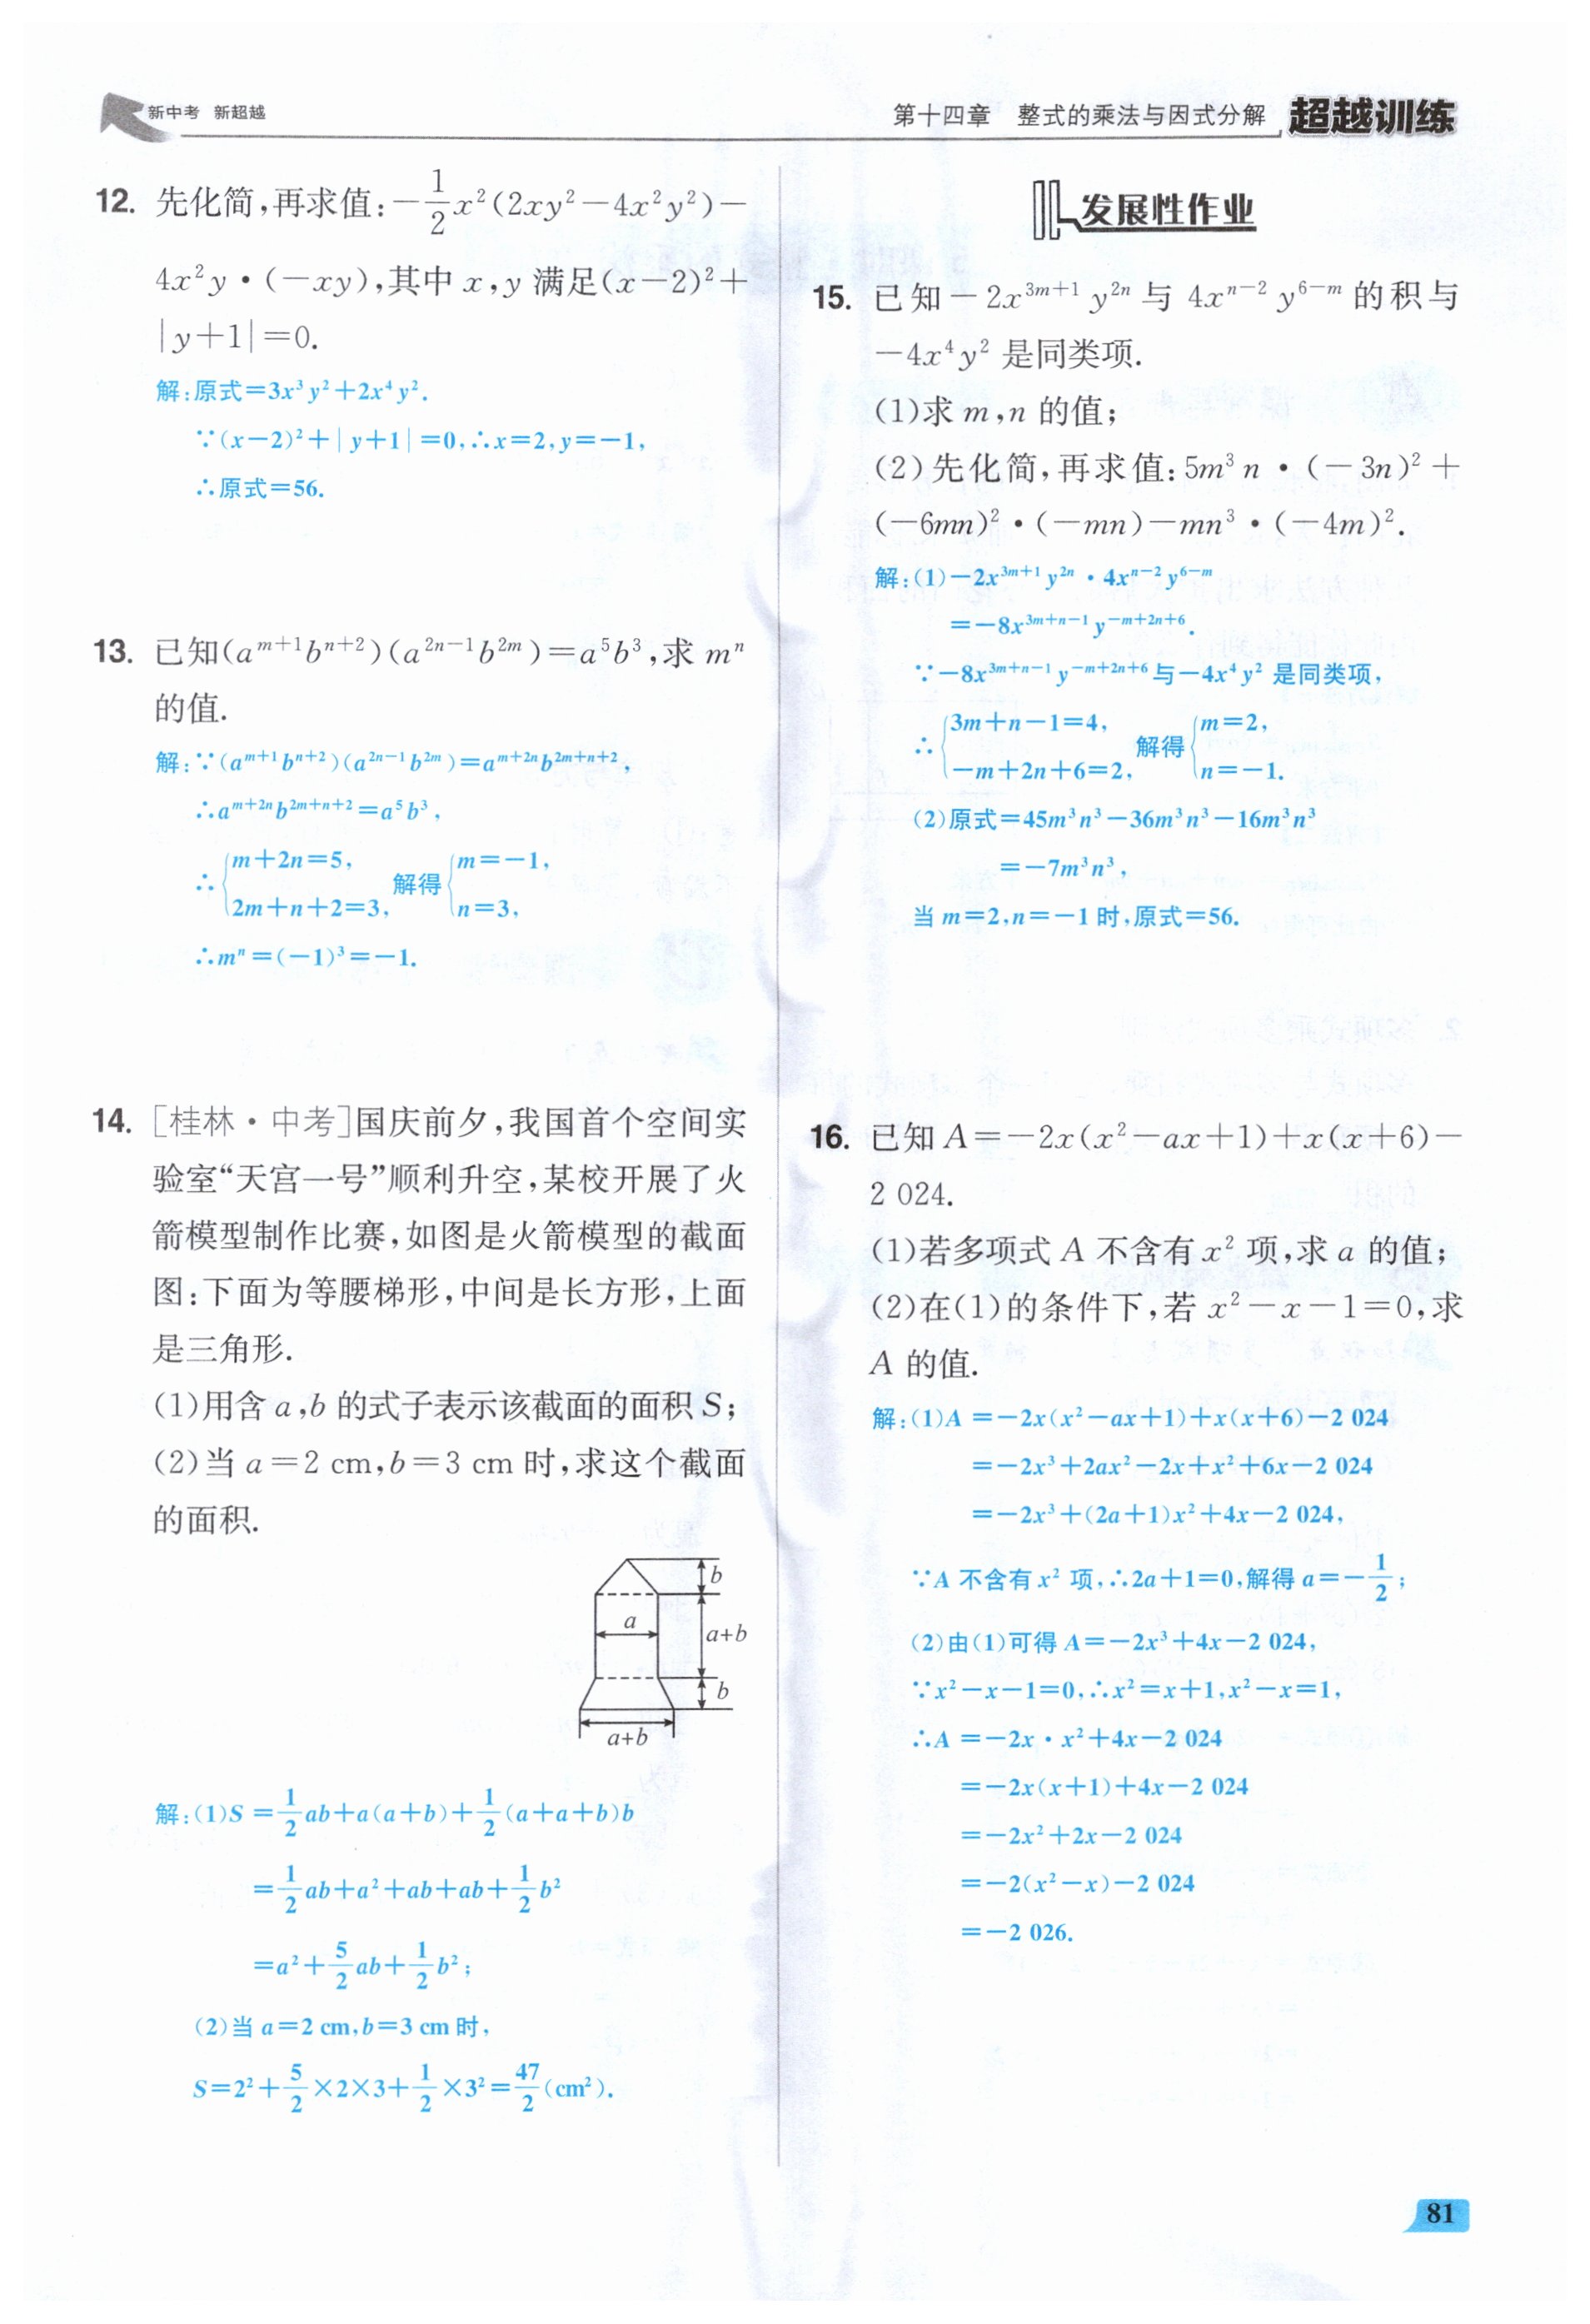 新中考 新超越
第十四章 整式的乘法与因式分解 超越训练
12. 先化简,再求值:−\frac{1}{2}x²(2xy²−4x²y²)−
4x²y·(−xy),其中 x,y 满足(x−2)²+
|y+1|=0.
解:原式=3x³y²+2x⁴y².
∵(x−2)²+|y+1|=0,∴x=2,y=−1,
∴原式=56.
13. 已知(a^{m+1}b^{n+2})(a^{2n−1}b^{2m})=a⁵b³,求 mⁿ
的值.
解:∵(a^{m+1}b^{n+2})(a^{2n−1}b^{2m})=a^{m+2n}b^{2m+n+2},
∴a^{m+2n}b^{2m+n+2}=a⁵b³,
∴{m+2n=5, 2m+n+2=3, 解得{m=−1, n=3,
∴mⁿ=(−1)³=−1.
14. [桂林·中考]国庆前夕,我国首个空间实
验室“天宫一号”顺利升空,某校开展了火
箭模型制作比赛,如图是火箭模型的截面
图:下面为等腰梯形,中间是长方形,上面
是三角形.
(1)用含 a,b 的式子表示该截面的面积 S;
(2)当 a=2 cm,b=3 cm 时,求这个截面
的面积.
b
a
a+b
b
a+b
解:(1)S=\frac{1}{2}ab+a(a+b)+\frac{1}{2}(a+a+b)b
=\frac{1}{2}ab+a²+ab+ab+\frac{1}{2}b²
=a²+\frac{5}{2}ab+\frac{1}{2}b²;
(2)当 a=2 cm,b=3 cm 时,
S=2²+\frac{5}{2}×2×3+\frac{1}{2}×3²=\frac{47}{2}(cm²).
发展性作业
15. 已知−2x^{3m+1}y^{2n} 与 4x^{n−2}y^{6−m} 的积与
−4x⁴y² 是同类项.
(1)求 m,n 的值;
(2)先化简,再求值:5m³n·(−3n)²+
(−6mn)²·(−mn)−mn³·(−4m)².
解:(1)−2x^{3m+1}y^{2n}·4x^{n−2}y^{6−m}
=−8x^{3m+n−1}y^{−m+2n+6}.
∵−8x^{3m+n−1}y^{−m+2n+6}与−4x⁴y² 是同类项,
∴{3m+n−1=4, −m+2n+6=2, 解得{m=2, n=−1.
(2)原式=45m³n³−36m³n³−16m³n³
=−7m³n³,
当 m=2,n=−1 时,原式=56.
16. 已知 A=−2x(x²−ax+1)+x(x+6)−
2 024.
(1)若多项式 A 不含有 x² 项,求 a 的值;
(2)在(1)的条件下,若 x²−x−1=0,求
A 的值.
解:(1)A=−2x(x²−ax+1)+x(x+6)−2 024
=−2x³+2ax²−2x+x²+6x−2 024
=−2x³+(2a+1)x²+4x−2 024,
∵A 不含有 x² 项,∴2a+1=0,解得 a=−\frac{1}{2};
(2)由(1)可得 A=−2x³+4x−2 024,
∵x²−x−1=0,∴x²=x+1,x²−x=1,
∴A=−2x·x²+4x−2 024
=−2x(x+1)+4x−2 024
=−2x²+2x−2 024
=−2(x²−x)−2 024
=−2 026.
81